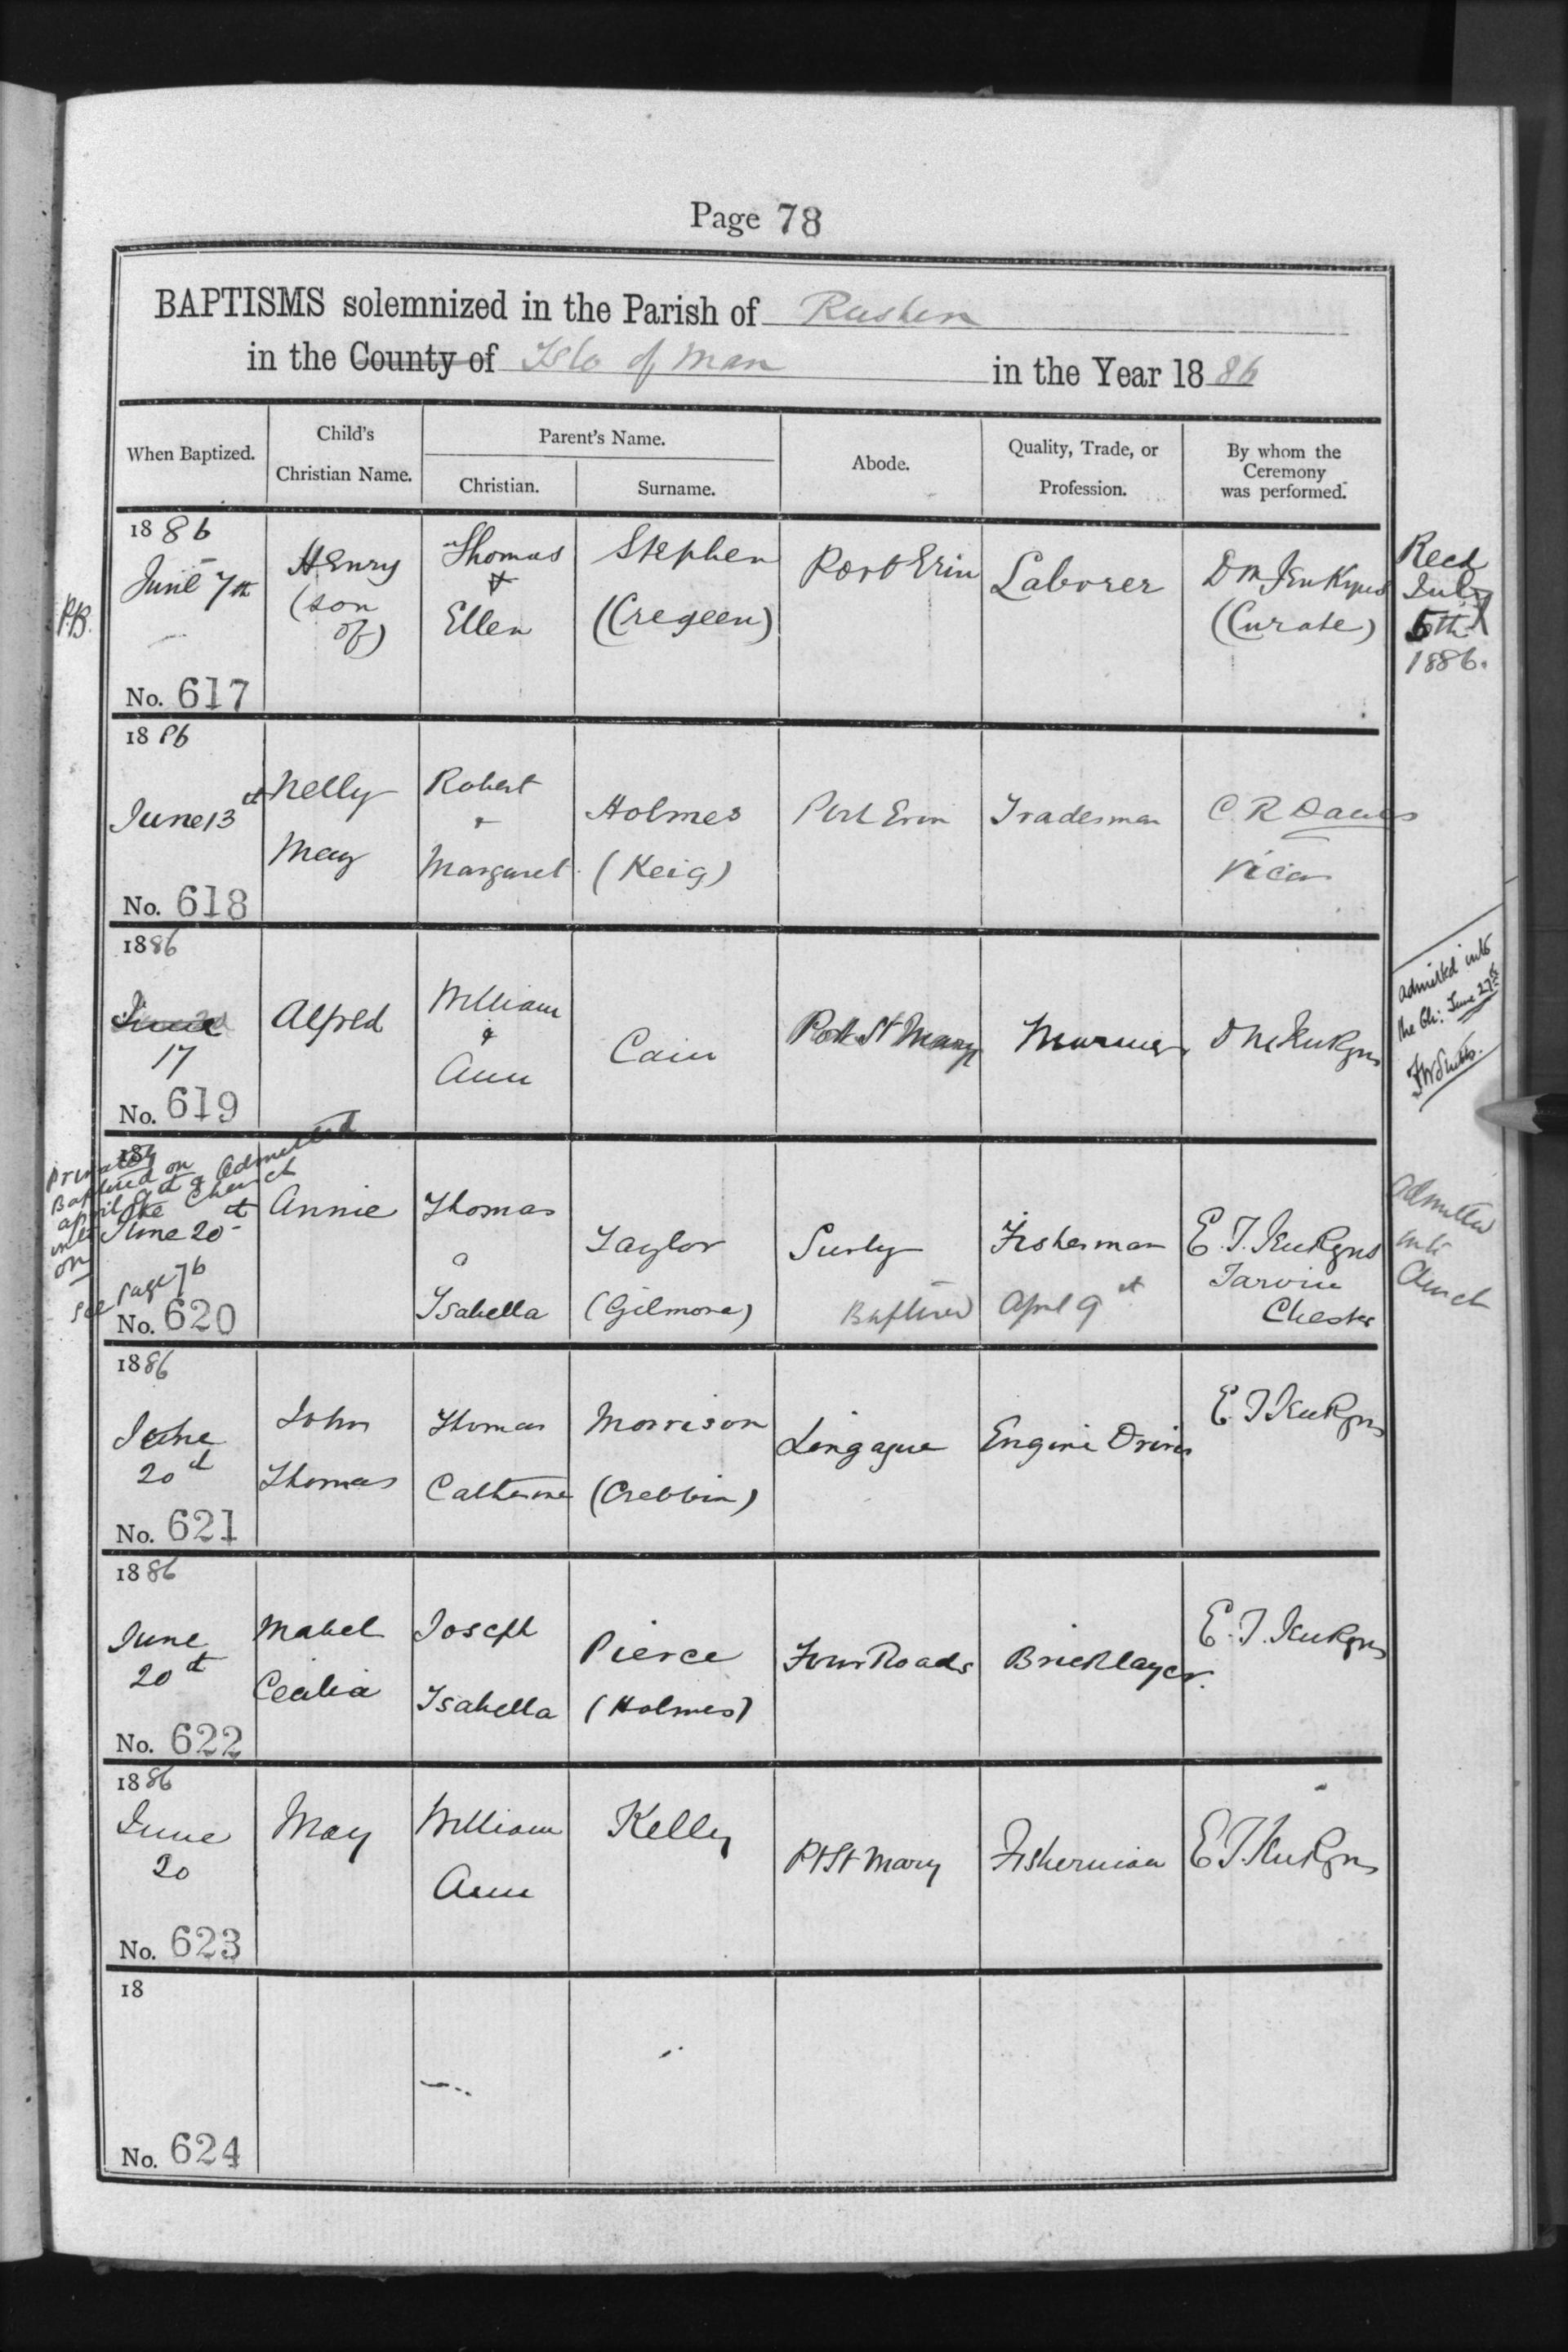 Page 78
BAPTISMS solemnized in the Parish of Rushen
in the County of Isle of Man in the Year 1886
When Baptized.
Child's
Christian Name.
Parent's Name.
Christian.
Surname.
Abode.
Quality, Trade, or
Profession.
By whom the
Ceremony
was performed.
1886
June 7th
PB.
No. 617
Henry
(son
of)
Thomas
&
Ellen
Stephen
(Cregeen)
Port Erin
Laborer
D M Jenkyns
(Curate)
Recd
July
5th
1886.
1886
June 13th
No. 618
Nelly
May
Robert
&
Margaret
Holmes
(Keig)
Port Erin
Tradesman
C R Davies
Vicar
1886
June
17
No. 619
Alfred
William
&
Ann
Cain
Port St Mary
Mariner
D M Jenkyns
admitted into
the Ch: June 27th
18
Privately
Baptized on
april 9th & admitted
into the Church
on June 20th
See page 76
No. 620
Annie
Thomas
&
Isabella
Taylor
(Gilmore)
Surby
Fisherman
Baptized April 9th
E. T. Jenkyns
Tarvin
Chester
admitted
into
Church
1886
June
20th
No. 621
John
Thomas
Thomas
Catherine
Morrison
(Crebbin)
Lingague
Engine Driver
E. T Jenkyns
1886
June
20th
No. 622
Mabel
Cecilia
Joseph
Isabella
Pierce
(Holmes)
Four Roads
Bricklayer.
E. T. Jenkyns
1886
June
20
No. 623
May
William
Ann
Kelly
Pt St Mary
Fisherman
E T. Jenkyns
18
No. 624